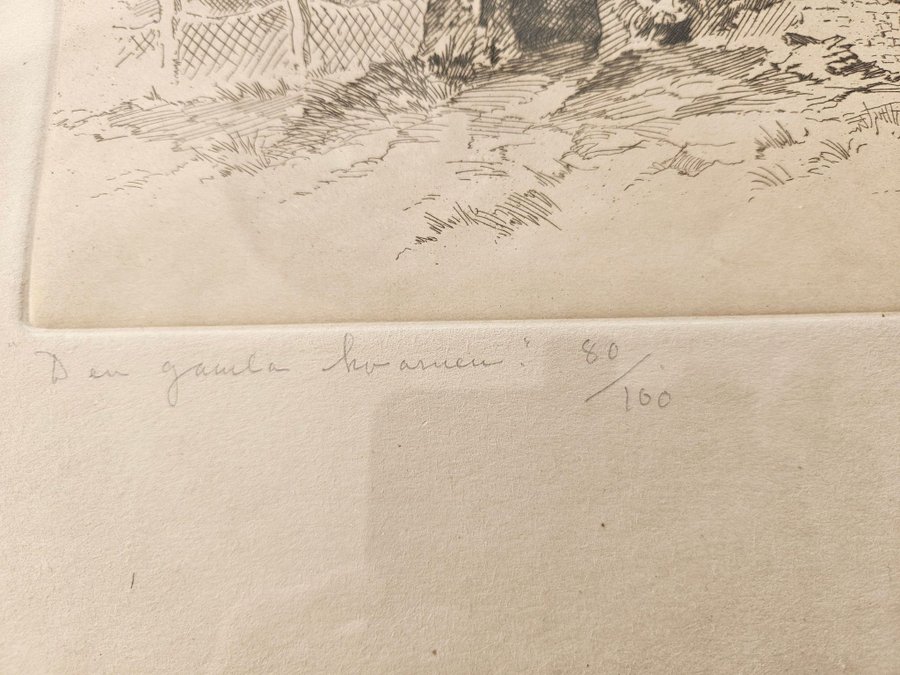 Den gamla kvarnen" 80/100